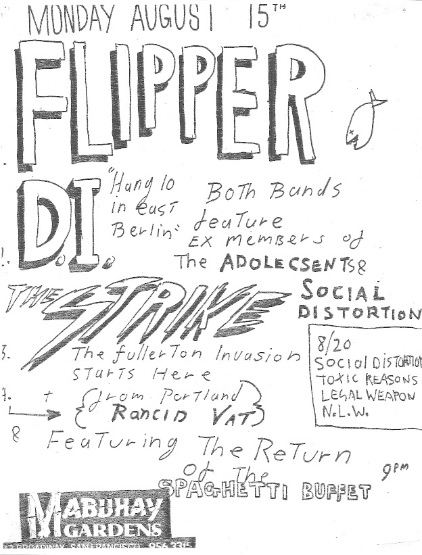 MONDAY AUGUST 15TH
FLIPPER
D.I.
"Hang 10
in east
Berlin"
Both Bands
feature
ex members of
The ADOLECSENTS &
SOCIAL
DISTORTION
THE STRIKE
The fullerton Invasion
starts Here
8/20
SOCIAL DISTORTION
TOXIC REASONS
LEGAL WEAPON
N.L.W.
+ {from Portland
RANCID VAT}
& Featuring The Return
Of The
SPAGHETTI BUFFET
9PM
MABUHAY
GARDENS
BROADWAY SAN FRANCISCO 956-3315